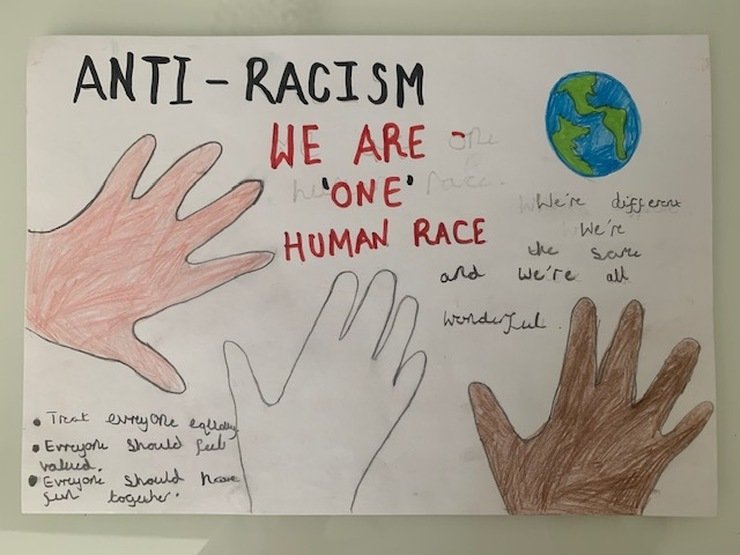 ANTI-RACISM
WE ARE -
'ONE'
HUMAN RACE
We're different
We're
the same
and we're all
wonderful.
• Treat everyone equally
• Everyone should feel
valued.
• Everyone should have
fun together.